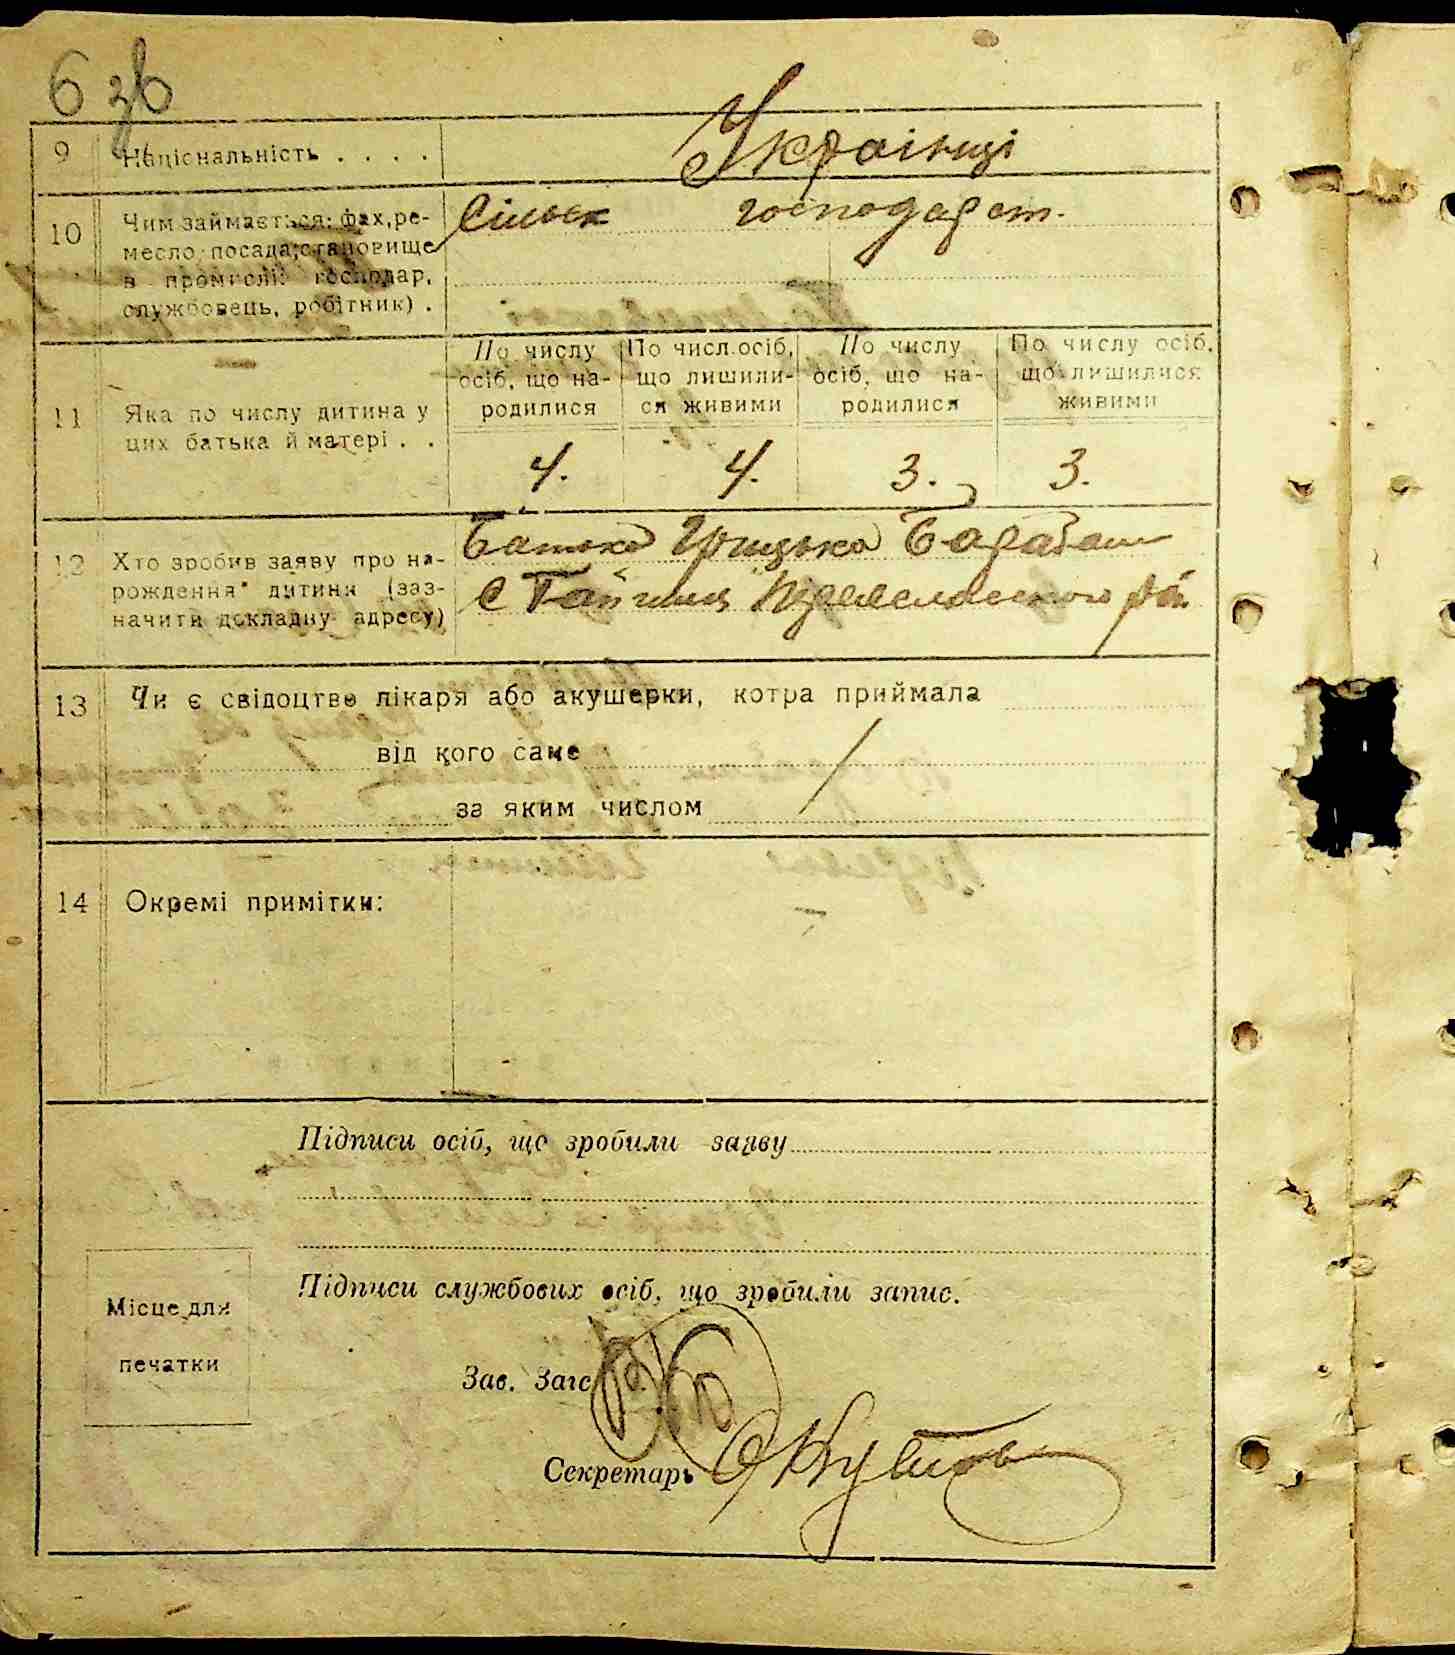 6 зв
9 Національність . . . . Українці
10 Чим займається: фах, ре-
месло, посада; становище
в промислі: господар,
службовець, робітник) .
Сільск господарст.
11 Яка по числу дитина у
цих батька й матері . .
По числу осіб, що на-родилися
По числ. осіб, що лишили-ся живими
По числу осіб, що на-родилися
По числу осіб, що лишилися живими
4. 4. 3. 3.
12 Хто зробив заяву про на-
рождення дитини (заз-
начити докладну адресу)
Батько Грицько Барабаш
с
рай.
13 Чи є свідоцтво лікаря або акушерки, котра приймала
від кого саме
за яким числом /
14 Окремі примітки: —
Підписи осіб, що зробили заяву
Підписи службових осіб, що зробили запис.
Місце для
печатки
Зав. Загс
Секретарь